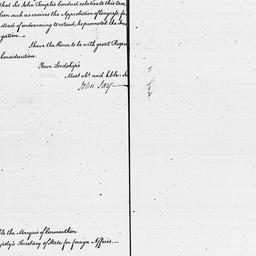 that Sir John Temple's Conduct relative to this
been such as receives the Approbation of Congress, for
stead of endeavouring to retard, he promoted the
gation.—
I have the Honor to be with great Respect
Consideration
Your Lordship's
Most Obt. and hble: 
John Jay—
the Marquis of Carmarthen
Secretary of State for foreign Affairs.—